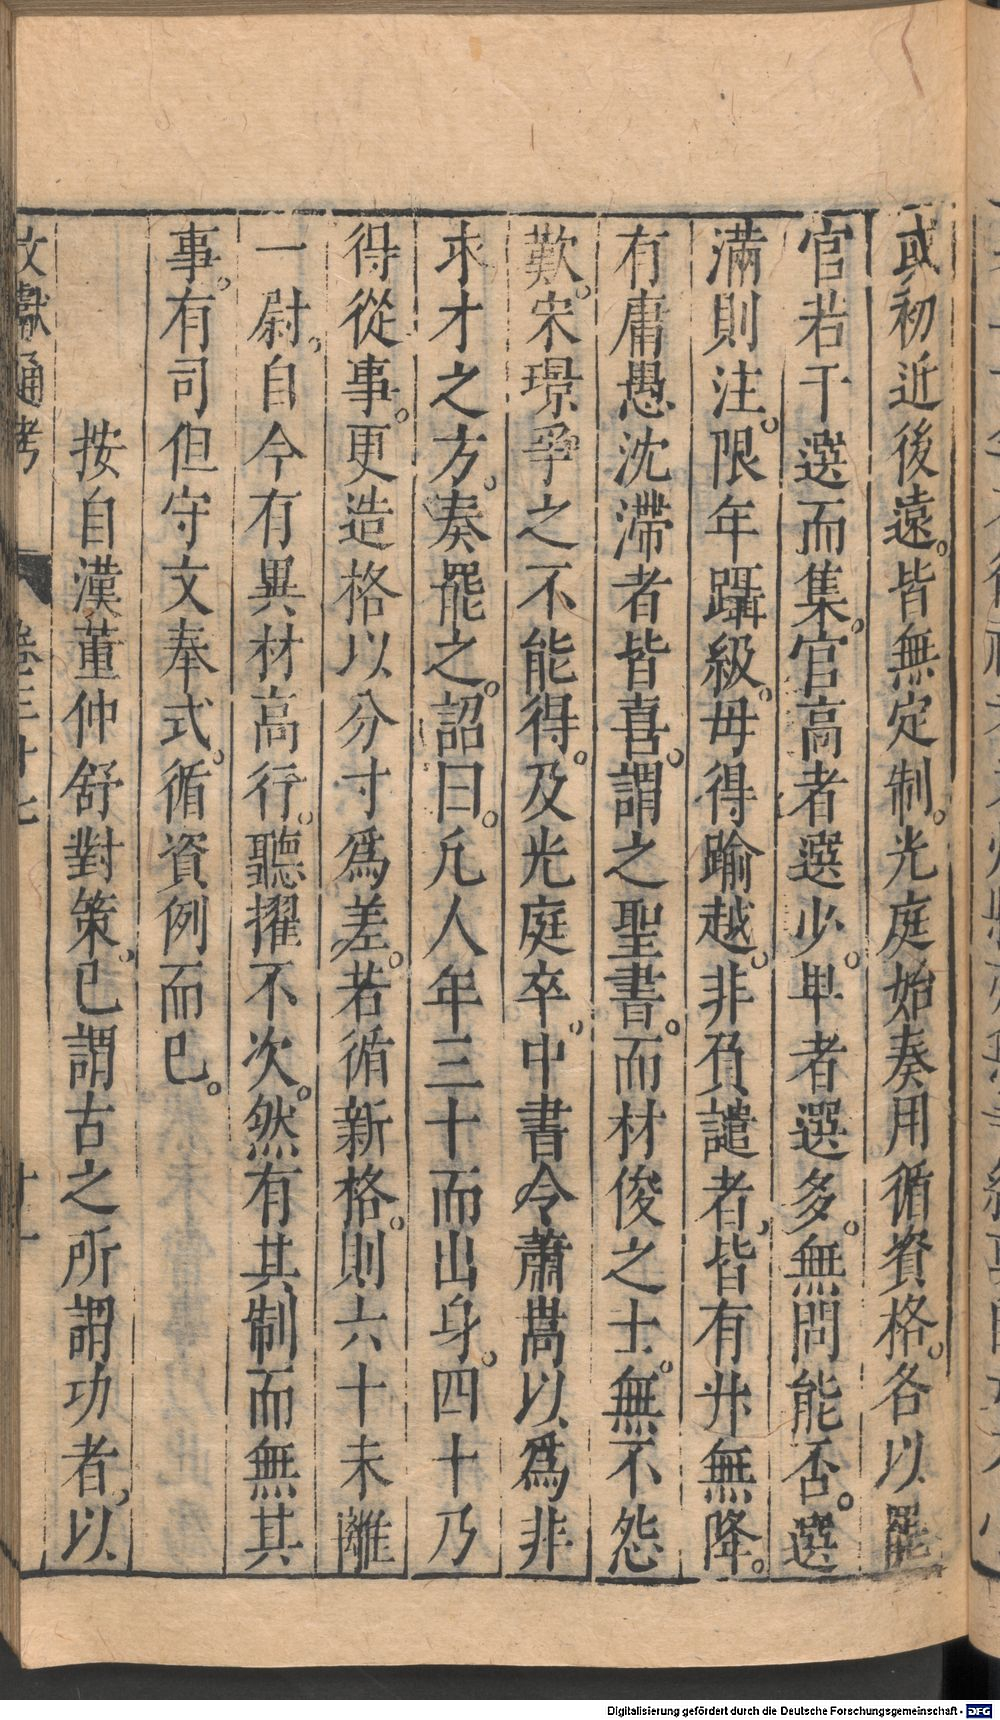 或初近後遠。皆無定制。光庭始奏用循資格。各以罷
官若干選而集。官高者選少。卑者選多。無問能否。選
滿則注。限年躡級。毋得踰越。非負譴者、皆有升無降。
有庸愚沈滯者皆喜。謂之聖書。而材俊之士。無不怨
歎。宋璟爭之不能得。及光庭卒、中書令蕭嵩以爲非
求才之方。奏罷之。詔曰。凡人年三十而出身。四十乃
得從事。更造格以分寸爲差。若循新格。則六十未離
一尉。自今有異材高行。聽擢不次。然有其制而無其
事。有司但守文奉式。循資例而已。
按自漢董仲舒對策、已謂古之所謂功者、以
文獻通考 卷三十七 十一
Digitalisierung gefördert durch die Deutsche Forschungsgemeinschaft - DFG